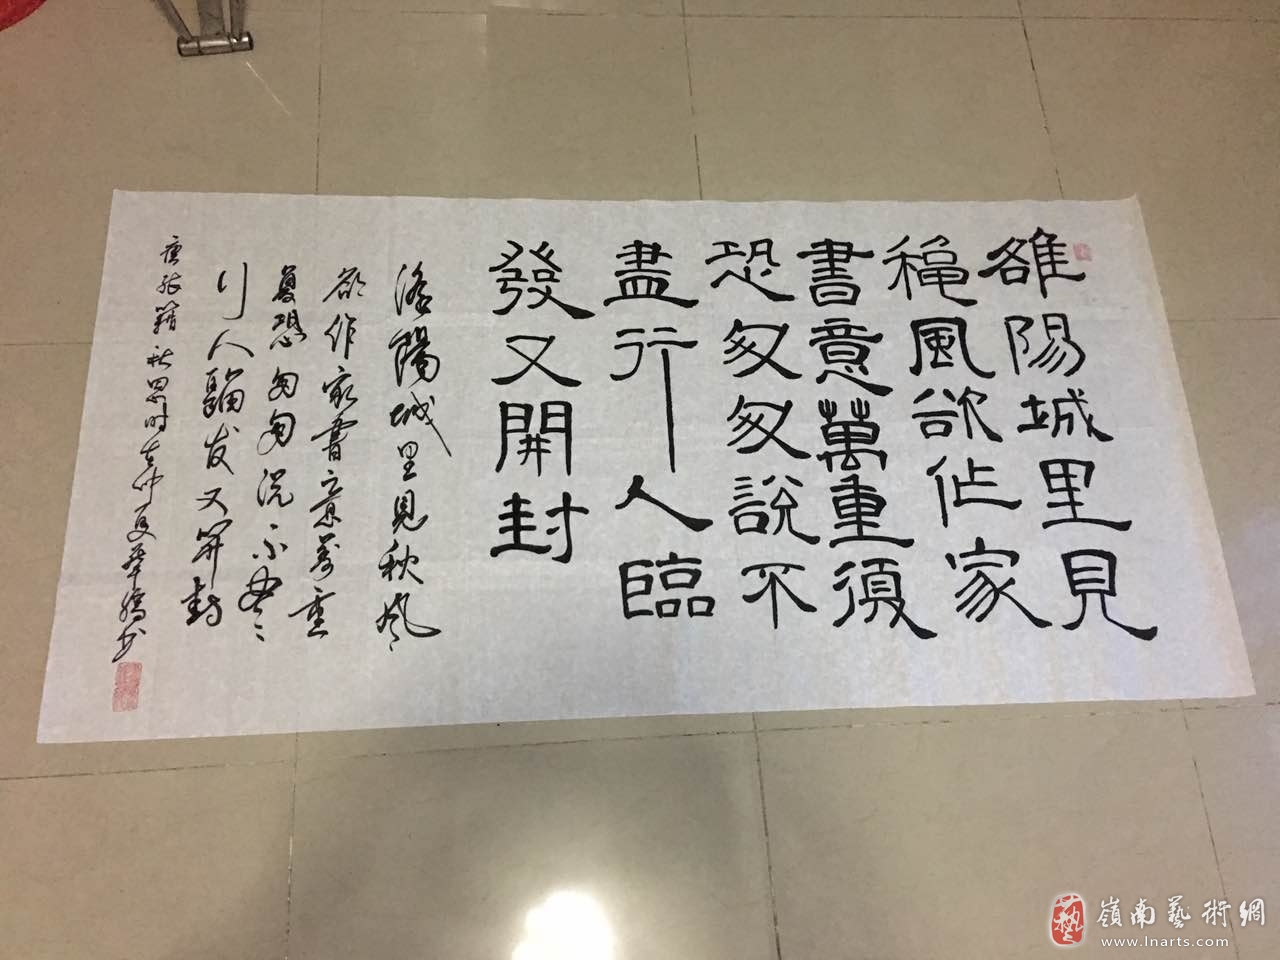 雒陽城里見
穐風欲作家
書意萬重復
恐匆匆說不
盡行人臨
發又開封
洛陽城里見秋风
欲作家書意萬重
复恐匆匆说不尽
行人臨发又開封
唐张籍秋思时在仲夏華書
嶺南藝術網
www.lnarts.com